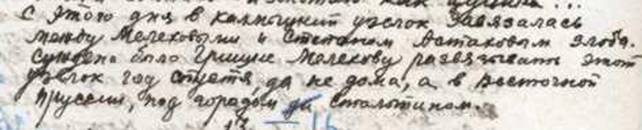 как
С этого дня в калмыцкий узелок завязалась
между Мелеховыми и Степаном Астаховым злоба.
Суждено было Григорию Мелехову развязывать этот
узелок год спустя, да не дома, а в Восточной
Пруссии, под городом Столыпином.